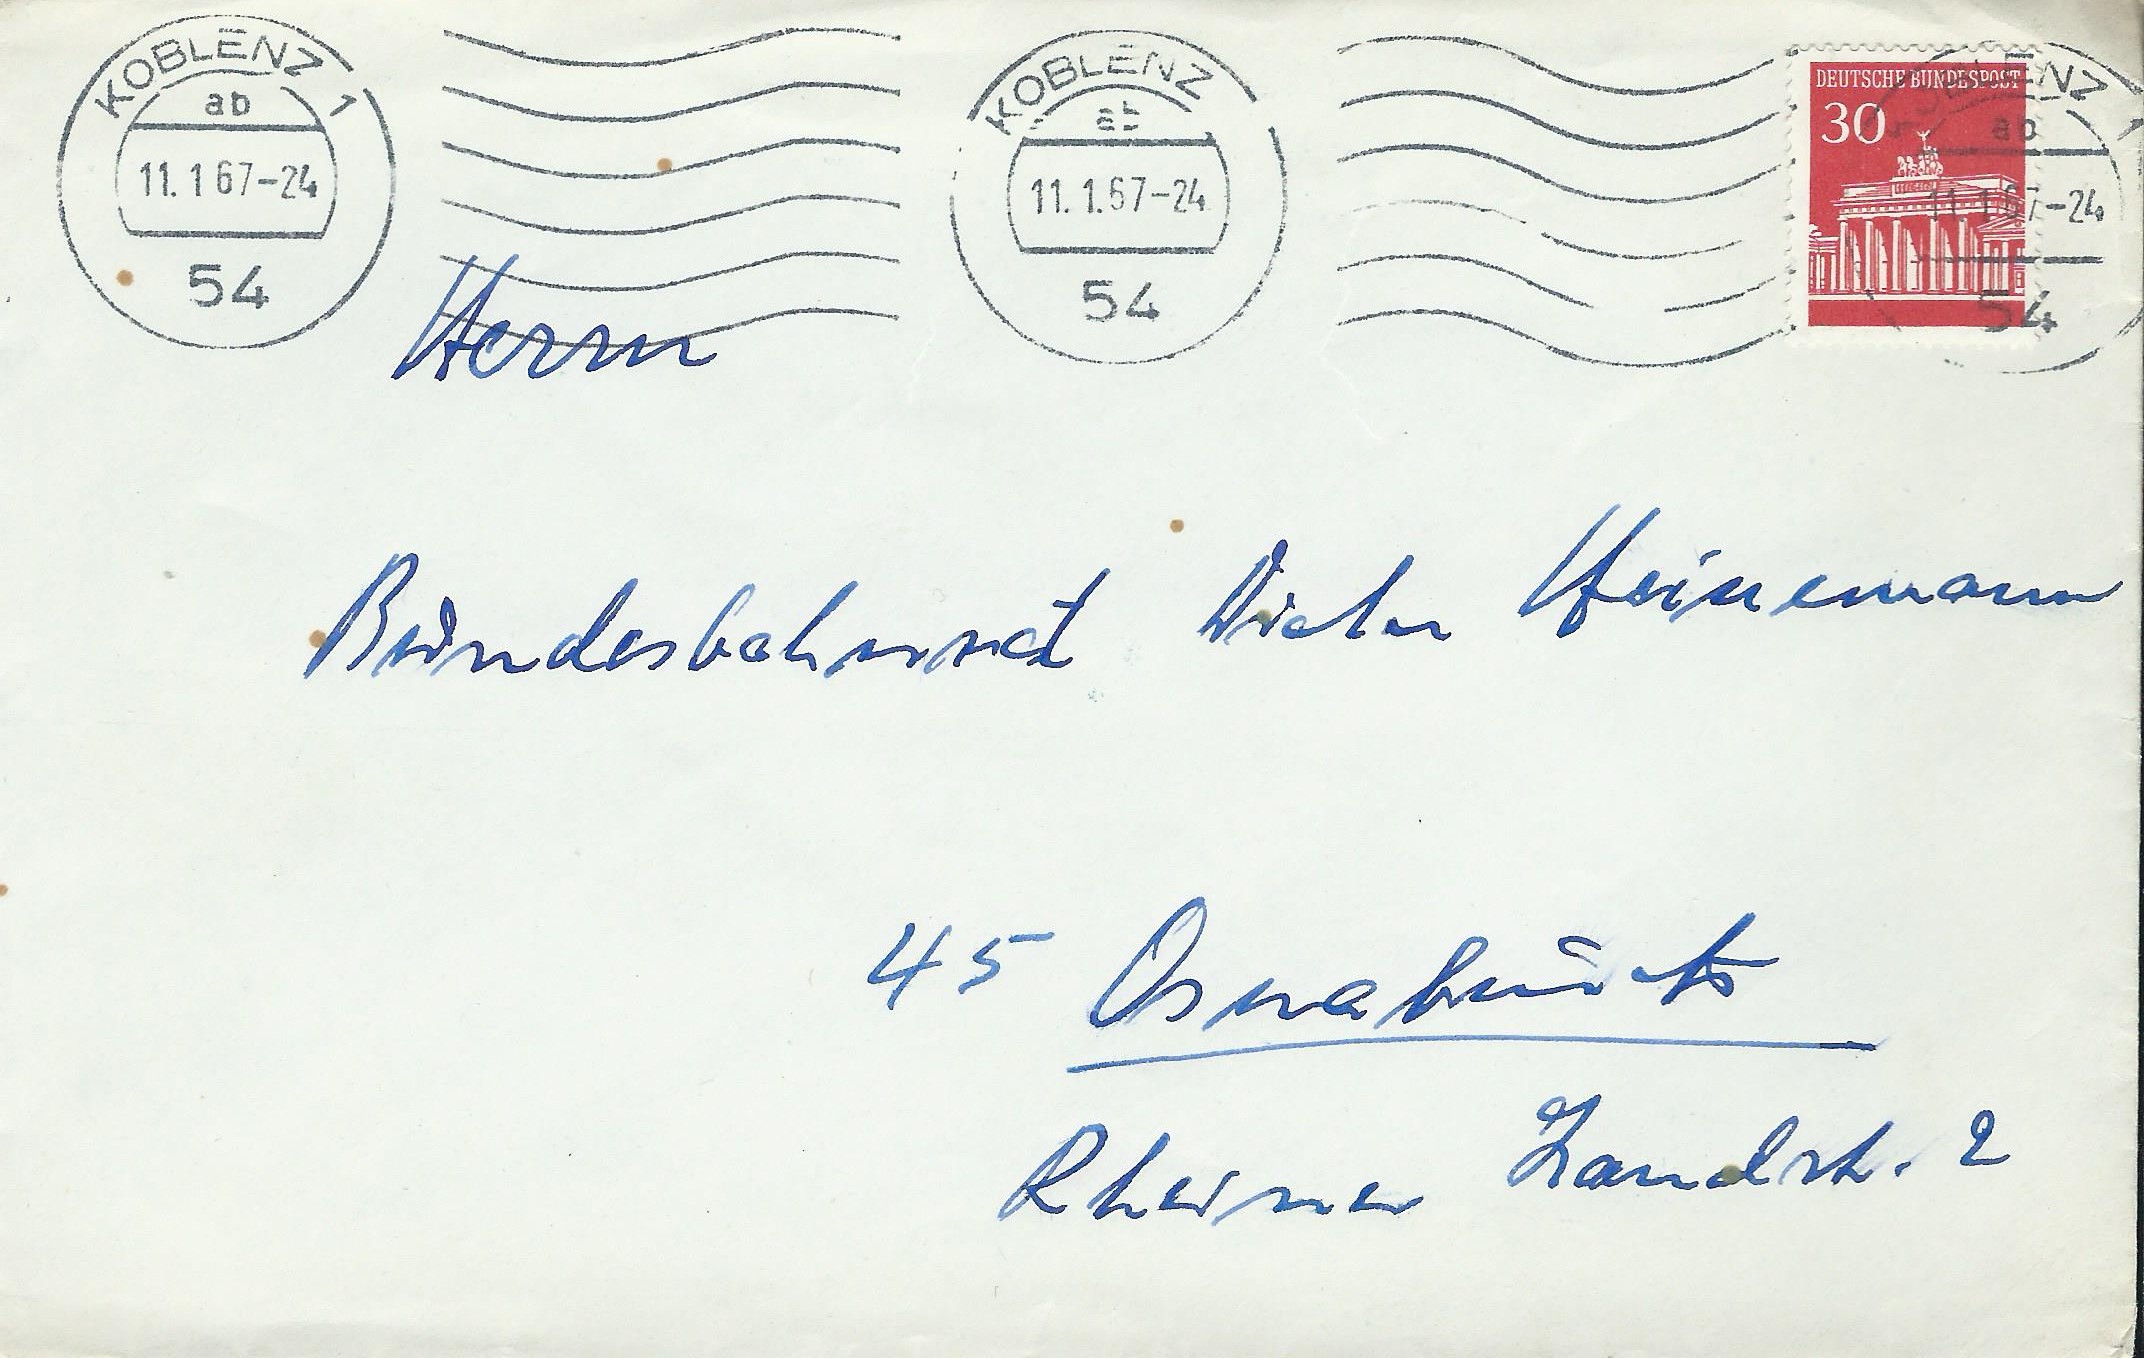 KOBLENZ 1
ab
11.1.67-24
54
KOBLENZ
ab
11.1.67-24
54
DEUTSCHE BUNDESPOST
30
KOBLENZ 1
ab
11.1.67-24
54
Herrn
Bundesbahnrat Dieter Heinemann
45 Osnabrück
Rheiner Landstr. 2